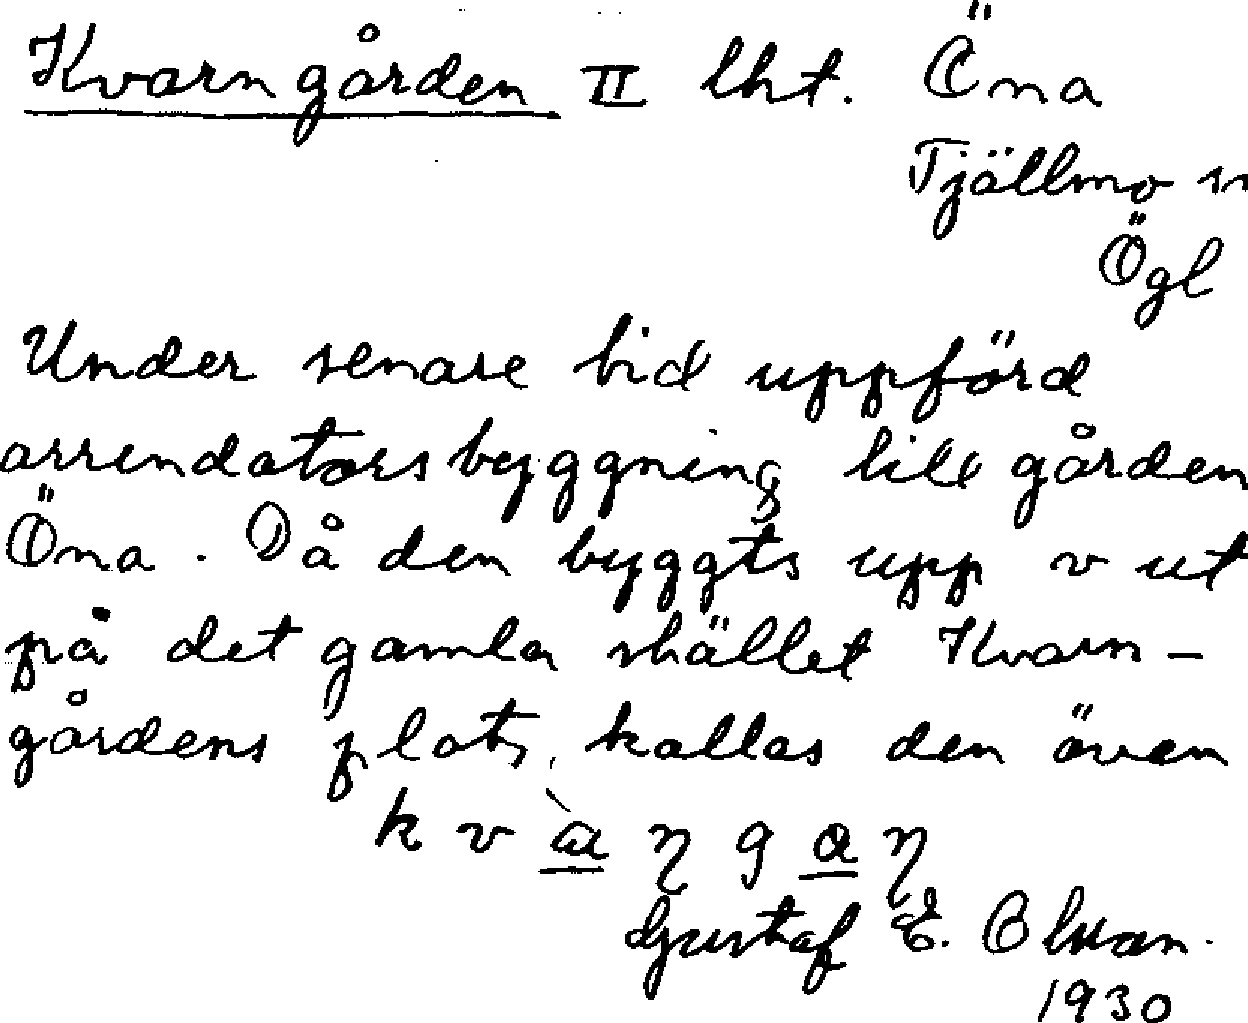 Kvarngården II lht. Öna
Tjällmo sn
Ögl
Under senare tid uppförd
arrendatorsbyggning till gården
Öna. Då den byggts upp v ut
på det gamla stället Kvarn-
gårdens plats, kallas den även
k v à̠ ŋ g a̠ ŋ
Gustaf E. Olsson.
1930